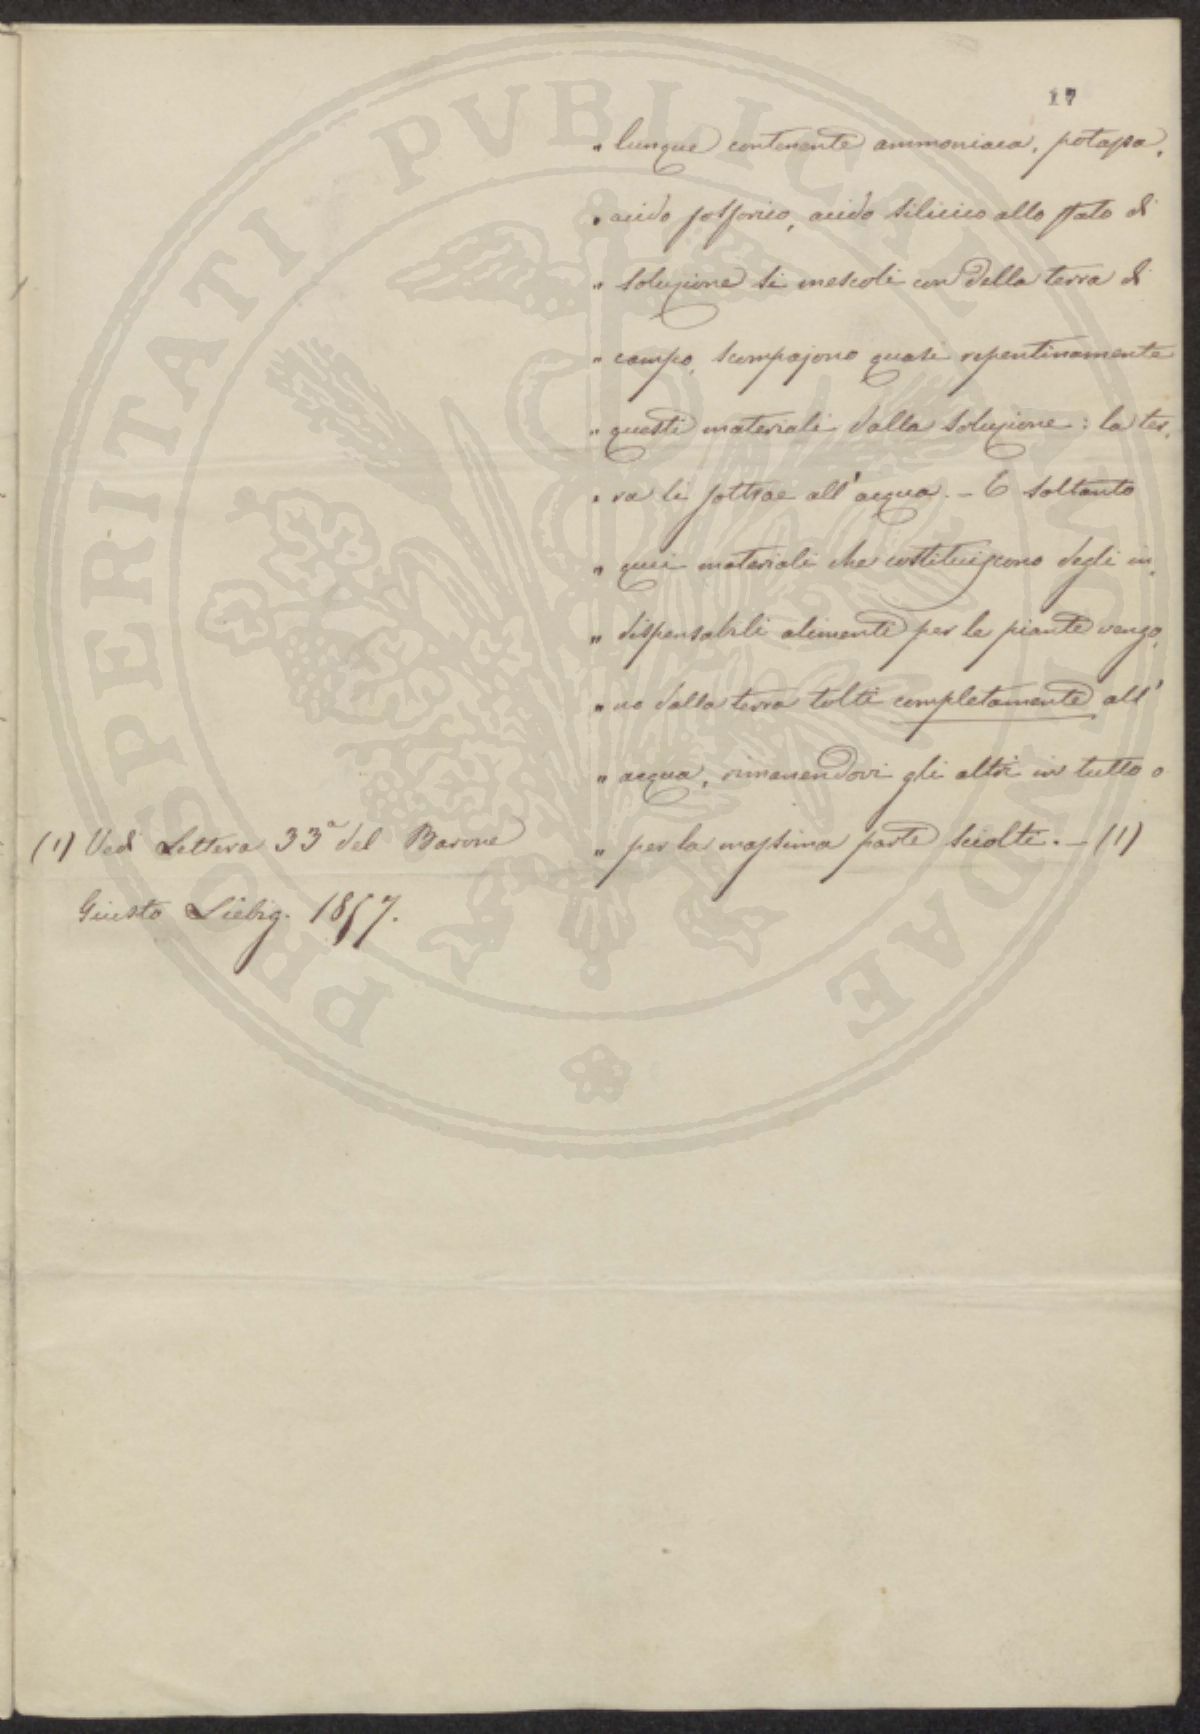 17
" lunque contenente ammoniaca, potassa,
" acido fosforico, acido silicico allo stato di
" soluzione si mescoli con della terra di
" campo, scompajono quasi repentinamente
" questi materiali dalla soluzione: la ter,
" ra li sottrae all'acqua. – E soltanto
" quei materiali che costituiscono degli in,
" dispensabili alimenti per le piante vengo,
" no dalla terra tolti completamente all'
" acqua, rimanendovi gli altri in tutto o
" per la massima parte sciolti. – (1)
(1) Vedi Lettera 33a del Barone
Giusto Liebig. 1857.
PROSPERITATI PUBLICAE